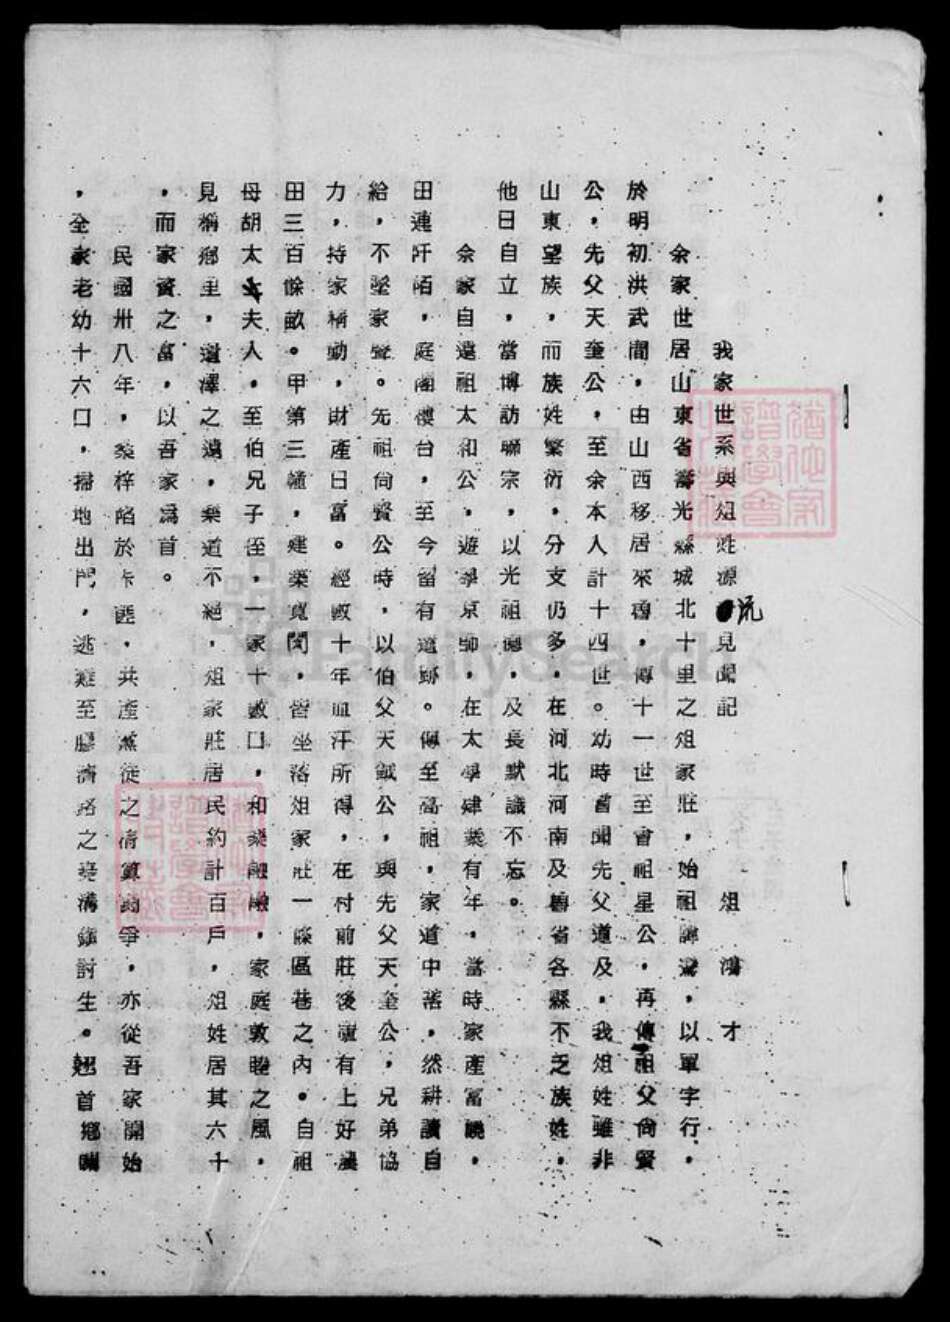 我家世系與俎姓源流見聞記
俎鴻才
余家世居山東省壽光縣城北十里之俎家莊，始祖諱，以單字行，
於明初洪武間，由山西移居來魯，傳十一世至曾祖星公，再傳祖父尙賢
公，先父天奎公，至余本人計十四世。幼時曾聞先父道及，我俎姓雖非
山東望族，而族姓繁衍，分支仍多，在河北河南及魯省各縣不乏族姓，
他日自立，當博訪聯宗，以光祖德，及長默識不忘。
余家自遠祖太和公，遊學京師，在太學肄業有年，當時家產富饒，
田連阡陌，庭園樓台，至今留有遺跡。傳至高祖，家道中落，然耕讀自
給，不墜家聲。先祖尙賢公時，以伯父天公，與先父天奎公，兄弟協
力，持家精勤，財產日富。經數十年血汗所得，在村前莊後置有上好良
田三百餘畝。甲第三幢，建築寬闊，皆坐落俎家莊一條區巷之內。自祖
母胡太夫人，至伯兄子侄，一家十數口，和樂融融，家庭敦睦之風，
見稱鄉里，遺澤之遠，樂道不絕，俎家莊居民約計百戶，俎姓居其六十
，而家資之富，以吾家爲首。
民國卅八年，桑梓陷於匪，共產黨徒之清算鬥爭，亦從吾家開始
，全家老幼十六口，掃地出門，逃難至膠濟路之溝鎮討生。翹首鄉